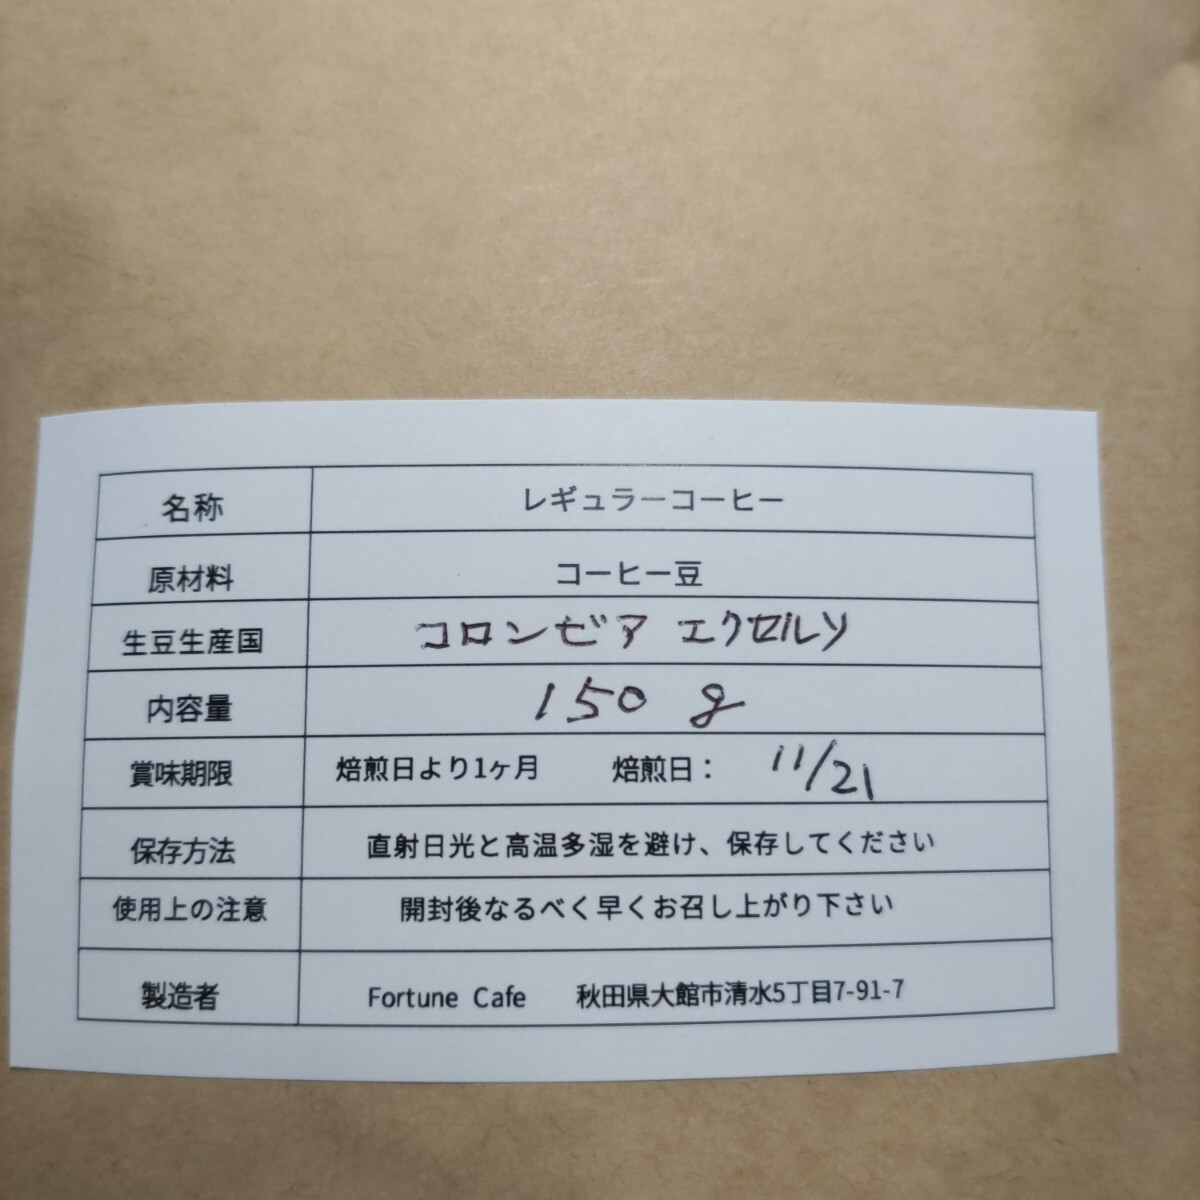 名称 レギュラーコーヒー
原材料 コーヒー豆
生豆生産国 コロンビア エクセルソ
内容量 150 g
賞味期限 焙煎日より1ヶ月 焙煎日： 11/21
保存方法 直射日光と高温多湿を避け、保存してください
使用上の注意 開封後なるべく早くお召し上がり下さい
製造者 Fortune Cafe 秋田県大館市清水5丁目7-91-7